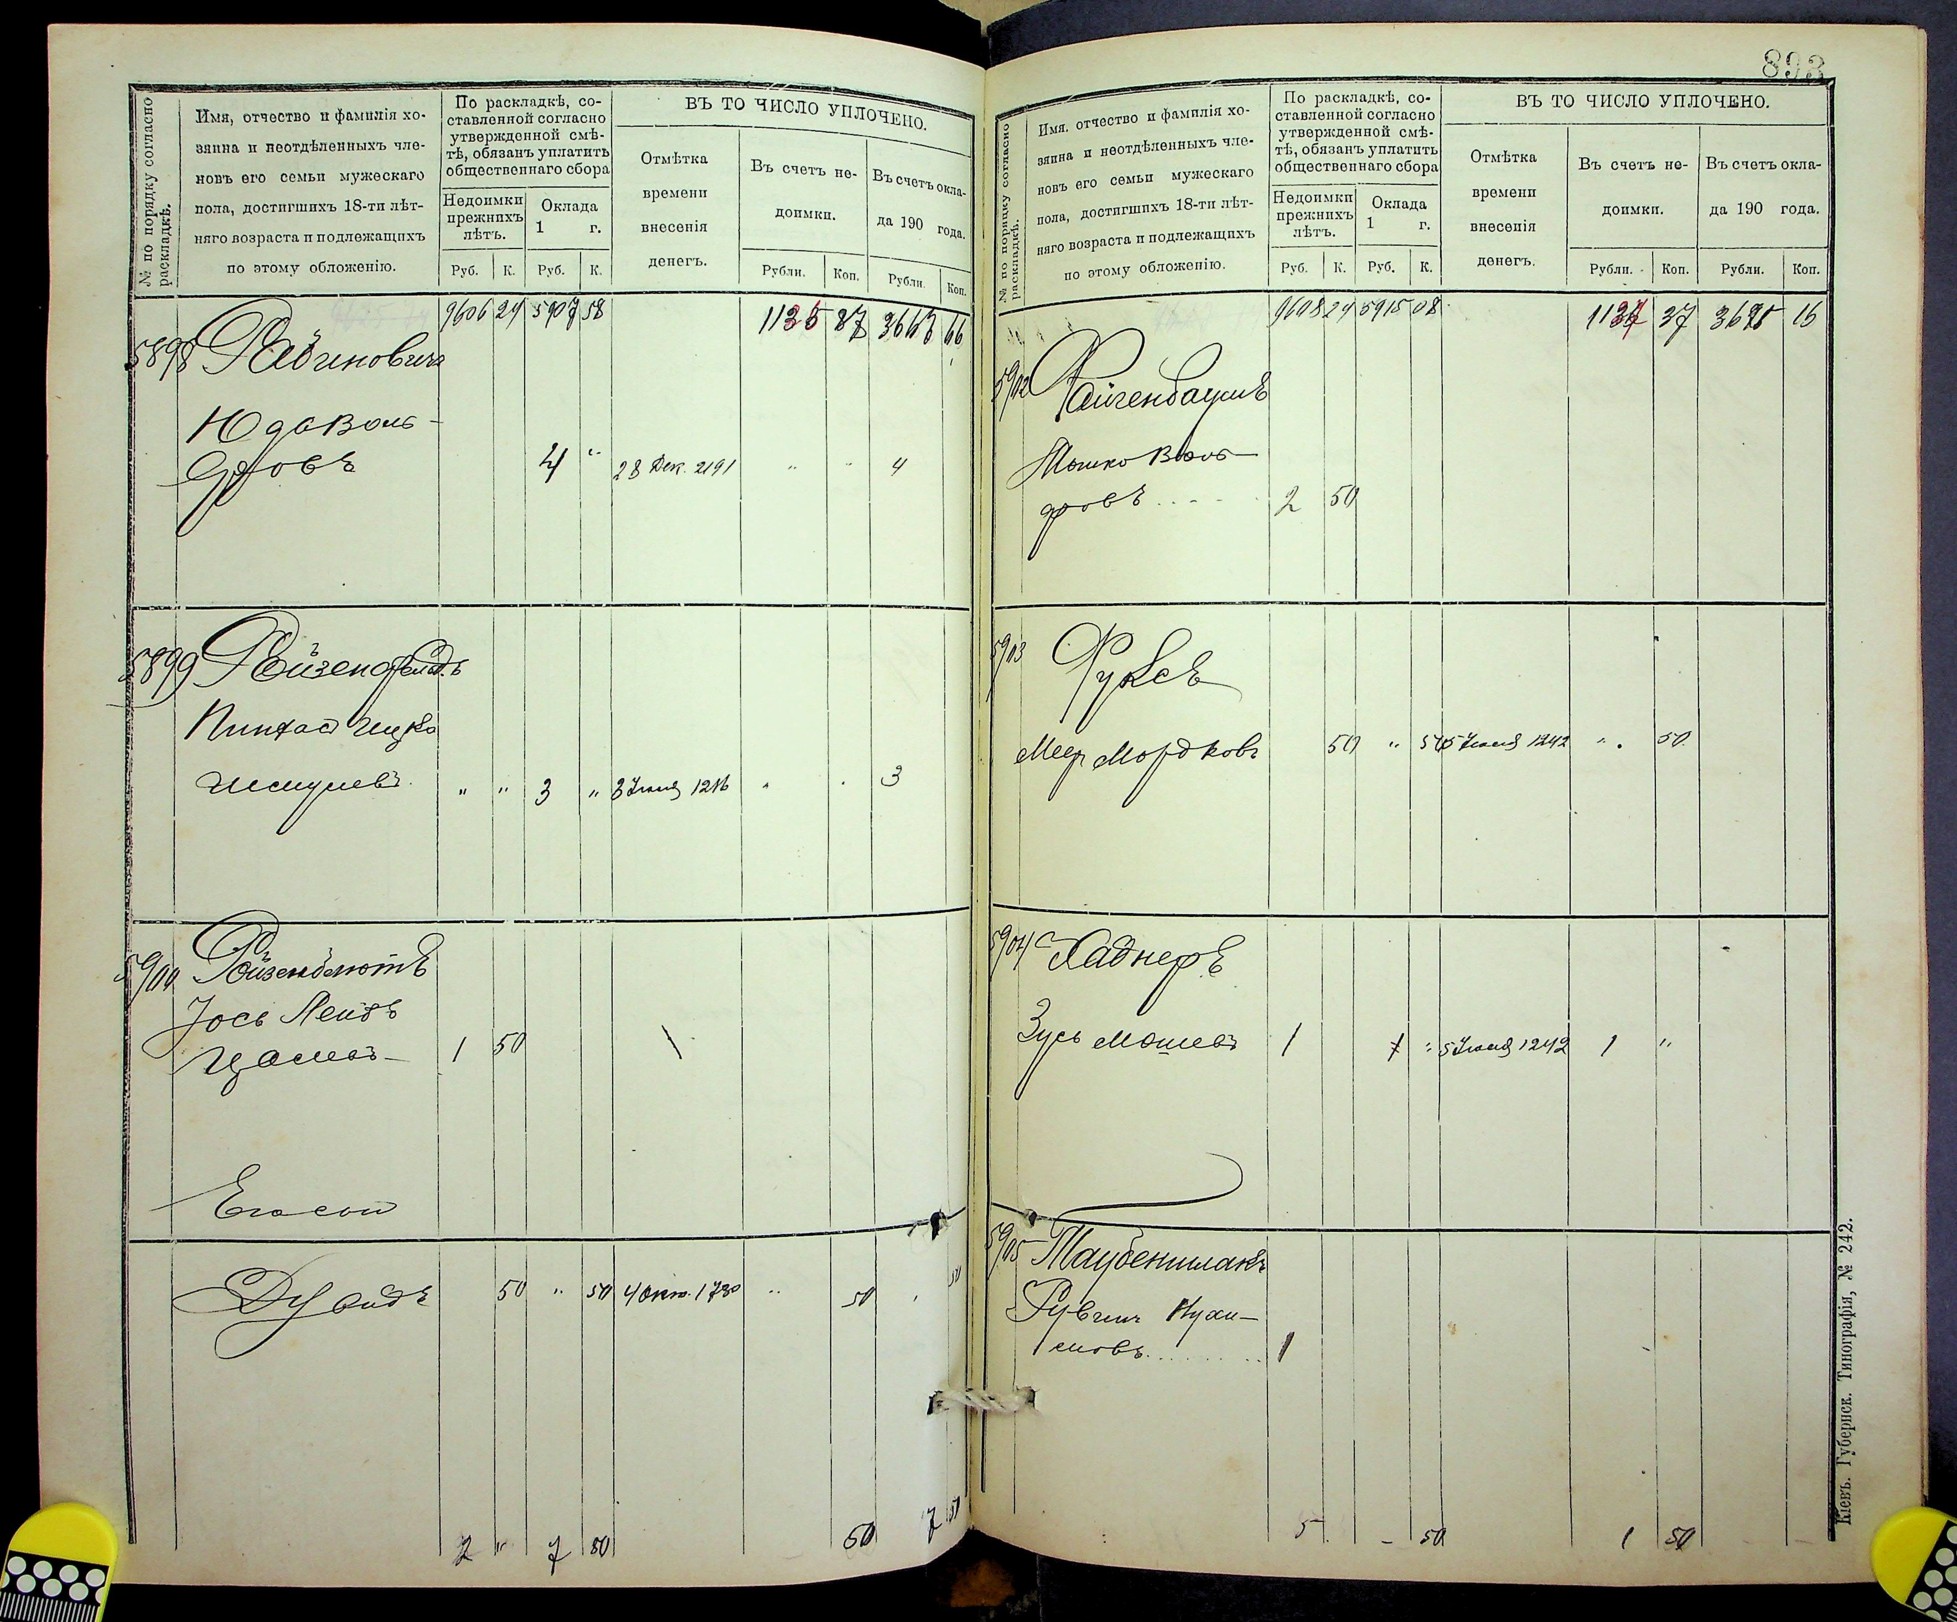 893
№ по порядку согласно раскладкѣ.
Имя, отчество и фамилія хо-
зяина и неотдѣленныхъ чле-
новъ его семьи мужескаго
пола, достигшихъ 18-ти лѣт-
няго возраста и подлежащихъ
по этому обложенію.
По раскладкѣ, со-
ставленной согласно
утвержденной смѣ-
тѣ, обязанъ уплатить
общественнаго сбора
Недоимки
прежнихъ
лѣтъ.
Оклада
1 г.
Руб. К. Руб. К.
ВЪ ТО ЧИСЛО УПЛОЧЕНО.
Отмѣтка
времени
внесенія
денегъ.
Въ счетъ не-
доимки.
Въ счетъ окла-
да 190 года.
Рубли. Коп. Рубли. Коп.
9606 24 5907 58 1135 87 36 66
5898 Рабиновичъ
Юда Воль-
фовъ 4 " 28 Дек. 2191 " " 4
5899 Ройзенфельдъ
Пинхас Ицко
Шмулевъ " " 3 " 3 Іюня 1216 " " 3
5900 Ройзенблютъ
Іось Лейбъ
1 50
50 " 50 4 Окт. 1730 " 50 50
2 " 7 50 50 7 50
№ по порядку согласно раскладкѣ.
Имя, отчество и фамилія хо-
зяина и неотдѣленныхъ чле-
новъ его семьи мужескаго
пола, достигшихъ 18-ти лѣт-
няго возраста и подлежащихъ
по этому обложенію.
По раскладкѣ, со-
ставленной согласно
утвержденной смѣ-
тѣ, обязанъ уплатить
общественнаго сбора
Недоимки
прежнихъ
лѣтъ.
Оклада
1 г.
Руб. К. Руб. К.
ВЪ ТО ЧИСЛО УПЛОЧЕНО.
Отмѣтка
времени
внесенія
денегъ.
Въ счетъ не-
доимки.
Въ счетъ окла-
да 190 года.
Рубли. Коп. Рубли. Коп.
9608 24 5915 08 1137 37 16
5902 Файгенбаумъ
Мошко Воль-
фовъ 2 50
5903 Фуксъ
Меер Мордковъ 50 " 50 5 Іюня 1242 " 50
5904 Хаднеръ
Зусь Мошевъ 1 1 " 5 Іюня 1242 1 "
5905 Таубеншлакъ
Рувинъ Нухи-
мовъ 1
5 - 50 1 50
Кіевъ. Губернск. Типографія, № 242.